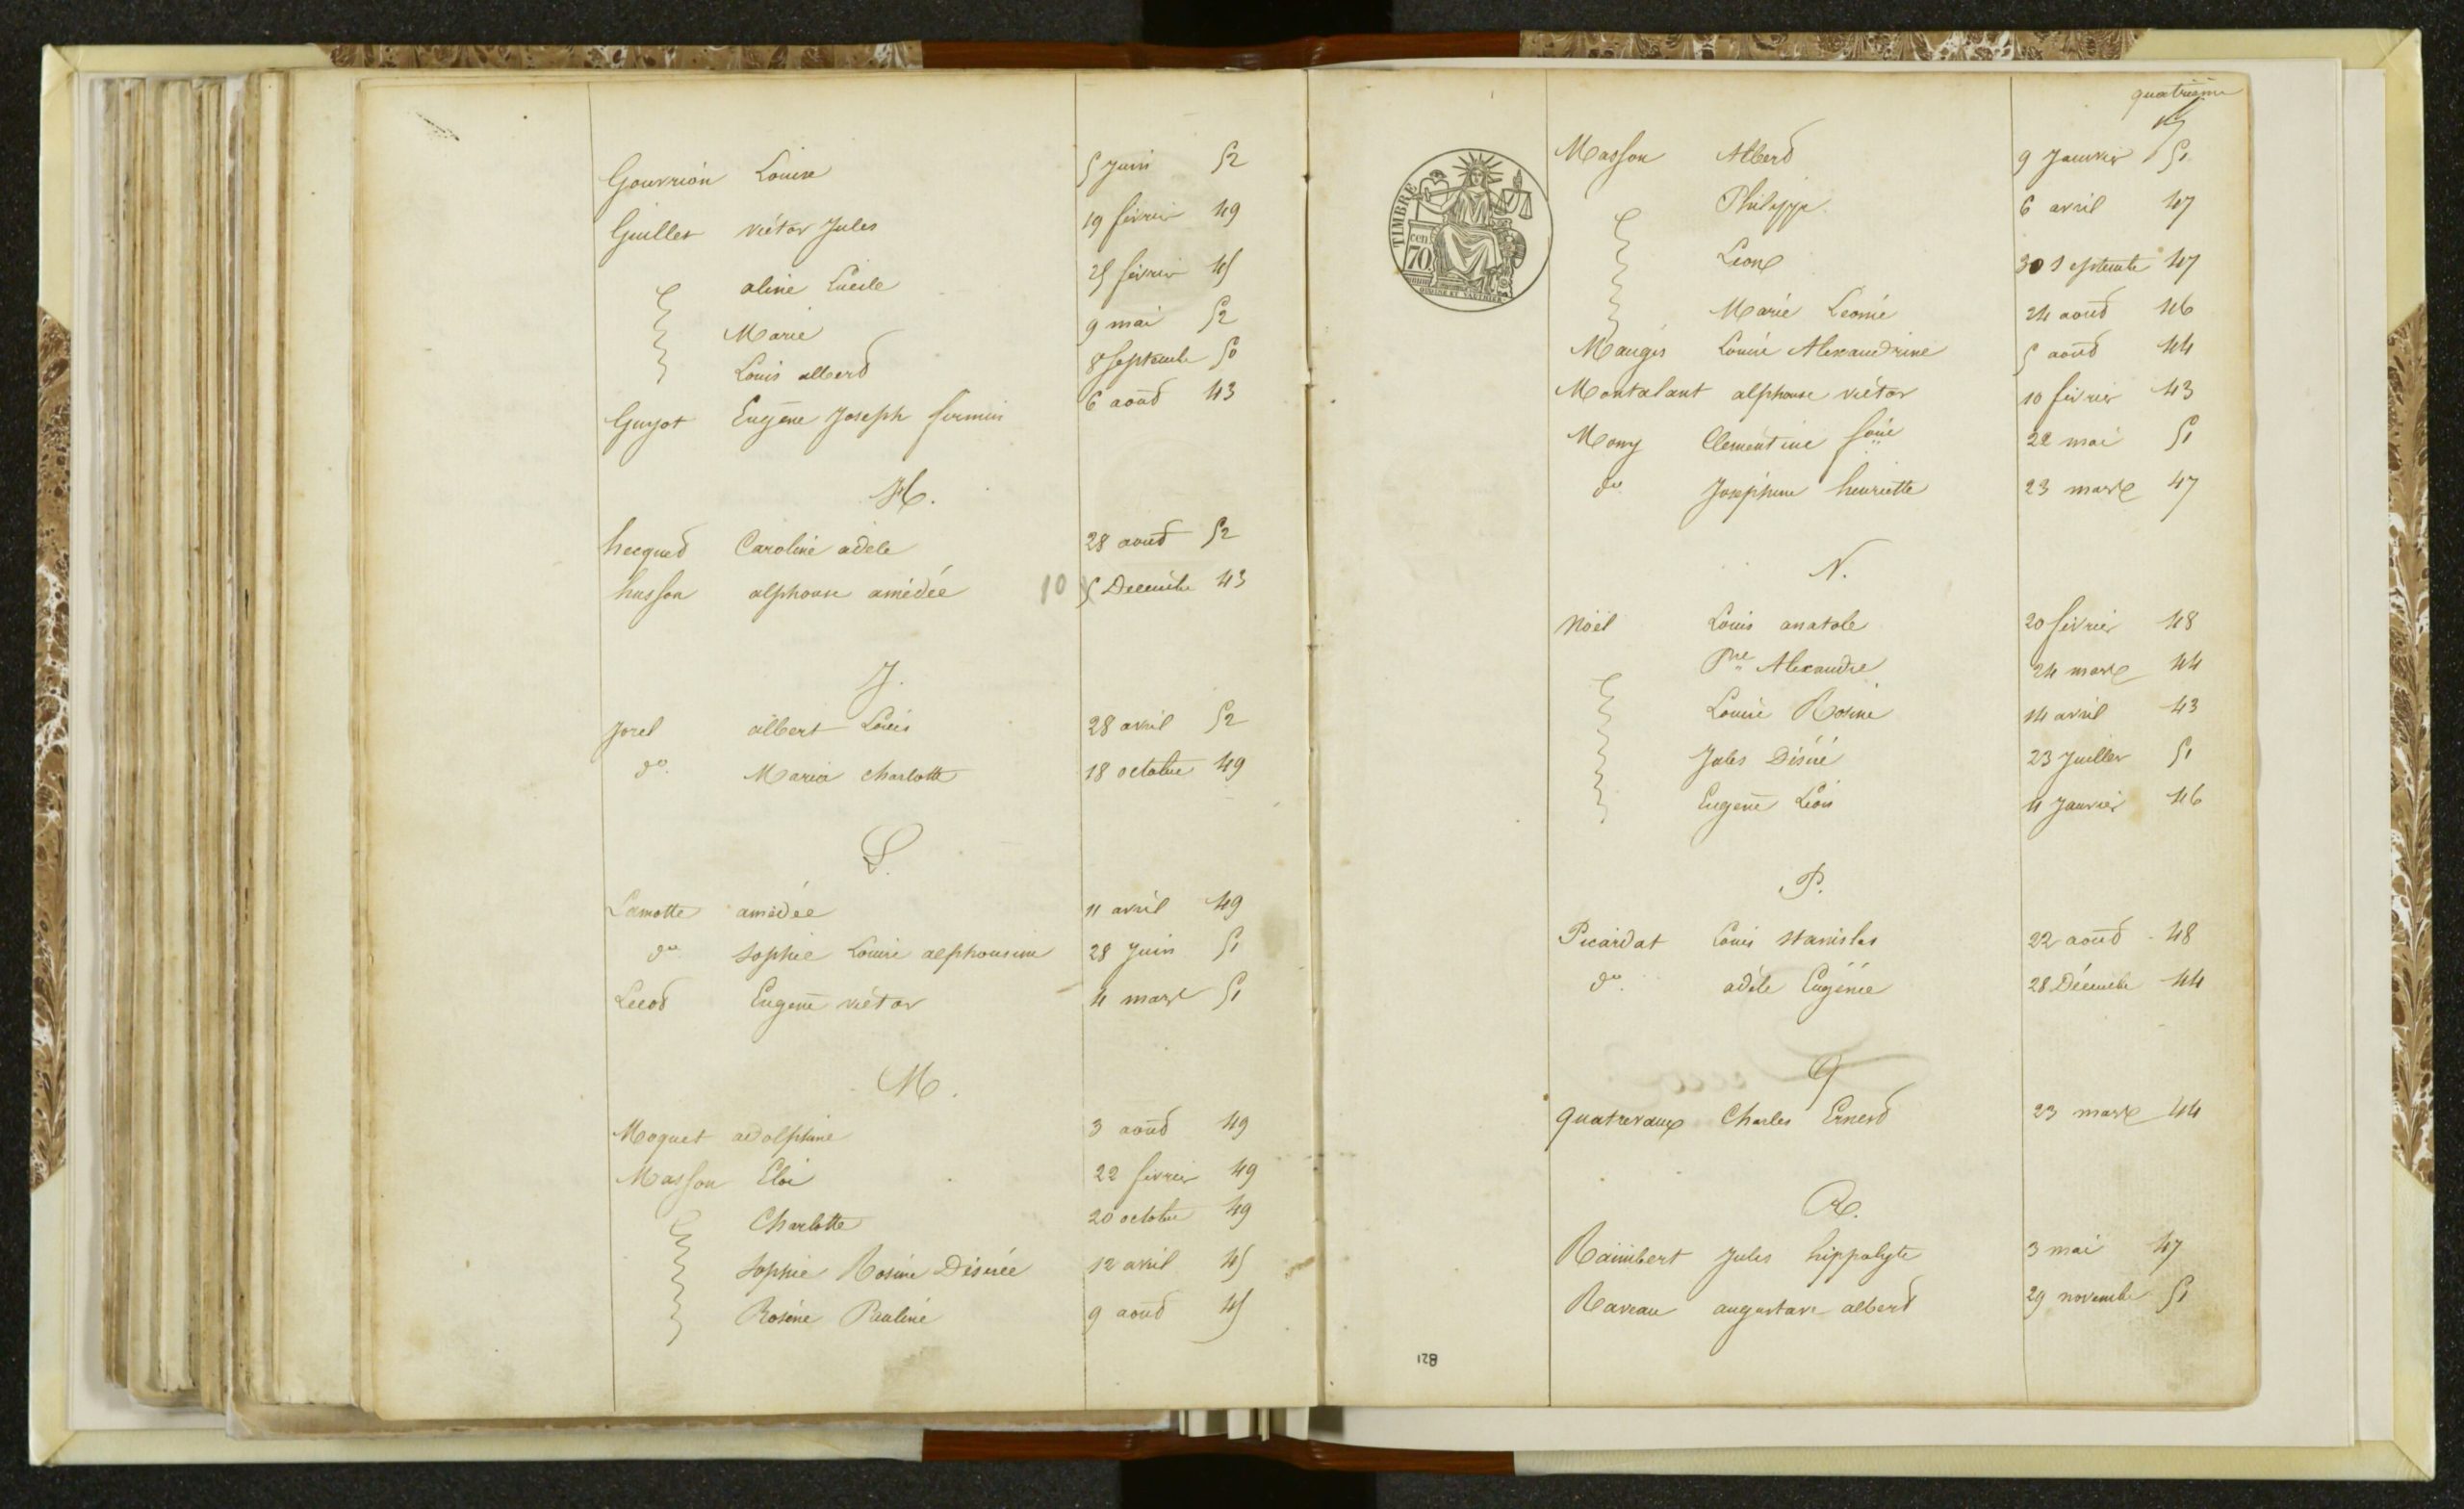 Gouvrion Louise 5 Juin 52
Guillet victor Jules 19 février 49
aline Lucile 25 février 45
Marie 9 mai 52
Louis albert 8 Septembre 50
Guyot Eugène Joseph firmin 6 août 43
H.
hecquet Caroline adele 28 aout 52
husson alphonse amédée 10 5 Decembre 43
J.
Jorel albert Louis 28 avril 52
do. Maria charlotte 18 octobre 49
L.
Lamotte amédée 11 avril 49
do. Sophie Louise alphonsine 28 Juin 51
Lecot Eugène victor 4 mars 51
M.
Moquet adolphine 3 août 49
Masson Eloi 22 février 49
Charlotte 20 octobre 49
Sophie Rosine Désirée 12 avril 45
Rosine Pauline 9 août 45
quatrième
TIMBRE
cen
70
Masson Albert 9 Janvier 51
Philippe 6 avril 47
Leon 30 Septembre 47
Marie Léonie 24 août 46
Maugis Louise Alexandrine 5 août 44
Montalant alphonse victor 10 février 43
Mony Clementine 22 mai 51
do. Joséphine henriette 23 mars 47
N.
Noël Louis anatole 20 février 48
Pre Alexandre 24 mars 44
Louise Rosine 14 avril 43
Jules Désiré 23 Juillet 51
Eugène Léon 4 Janvier 46
P.
Picardat Louis stanislas 22 août 48
do. adèle Eugénie 28 Décembre 44
Q
quatrevaux Charles Ernest 23 mars 44
R.
Raimbert Jules hippolyte 3 mai 47
Raveau augustave albert 29 novembre 51
128